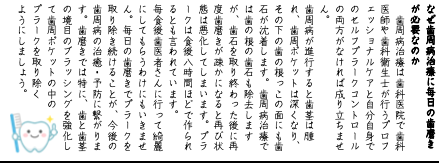 なぜ歯周病治療に毎日の歯磨き
が必要なのか
歯周病治療は歯科医院で歯科
医師や歯科衛生士が行うプロフ
ェッショナルケアと自分自身で
のセルフプラークコントロール
の両方がなければ成り立ちませ
ん。
歯周病が進行すると歯茎は腫
れ、歯周ポケットは深くなり、
その下の歯の根っこの面にも歯
石が沈着します。歯周病治療で
は歯の根の歯石も除去します
が、歯石を取り終わった後に再
度歯磨きが疎かになると再び状
態は悪化してしまいます。プラ
ークは食後八時間ほどで作られ
るとも言われています。
毎食後歯医者さんに行って綺麗
にしてもらうわけにもいきませ
ん。毎日の歯磨きでプラークを
取り除き続けることが、今後の
歯周病の治癒・予防に繋がりま
す。歯磨きでは特に、歯と歯茎
の境目のブラッシングを強化し
て歯周ポケットの中の
プラークを取り除く
ようにしましょう。